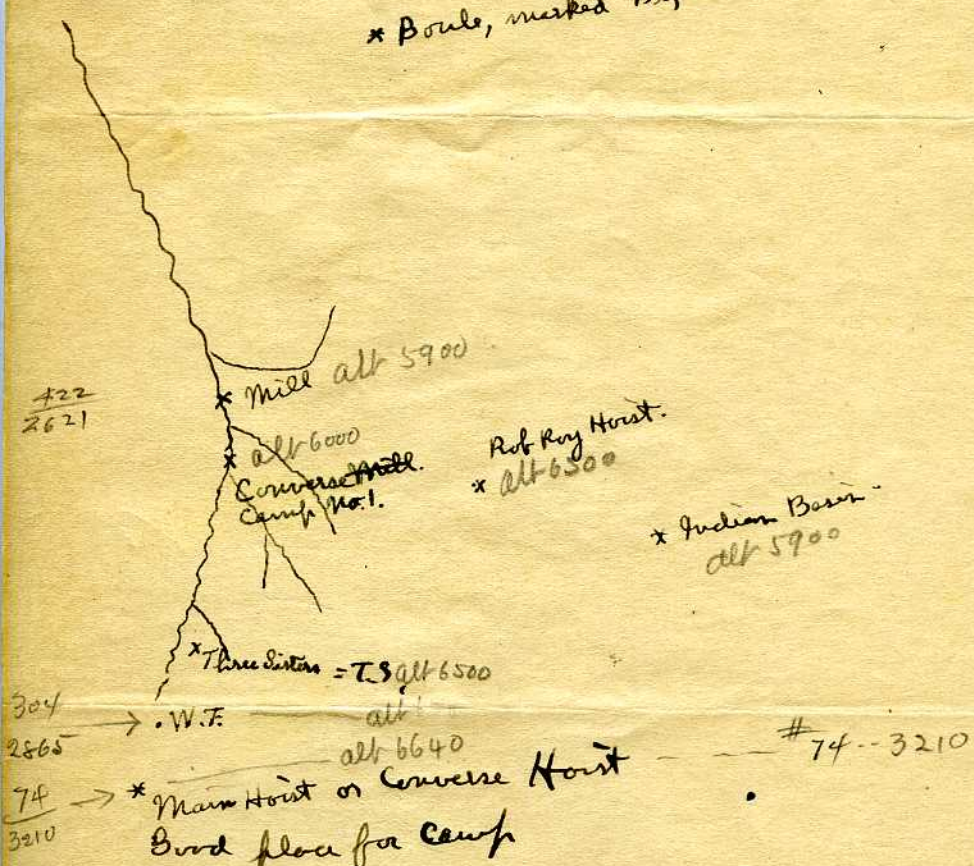 * Boule, marked
Mill alt 5900
422
2621
alt 6000
Converse Mill.
Camp No. 1.
Rob Roy Hoist.
* alt 6500
* Indian Basin
alt 5900
* Three Sisters = T.S alt 6500
304
2865
→ . W.T.
alt
alt 6640
#74 -- 3210
74
3210
→ * Main Hoist or Converse Hoist
Good place for Camp